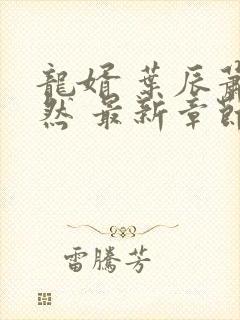 龍婿 葉辰蕭
然 最新章節
雷騰芳